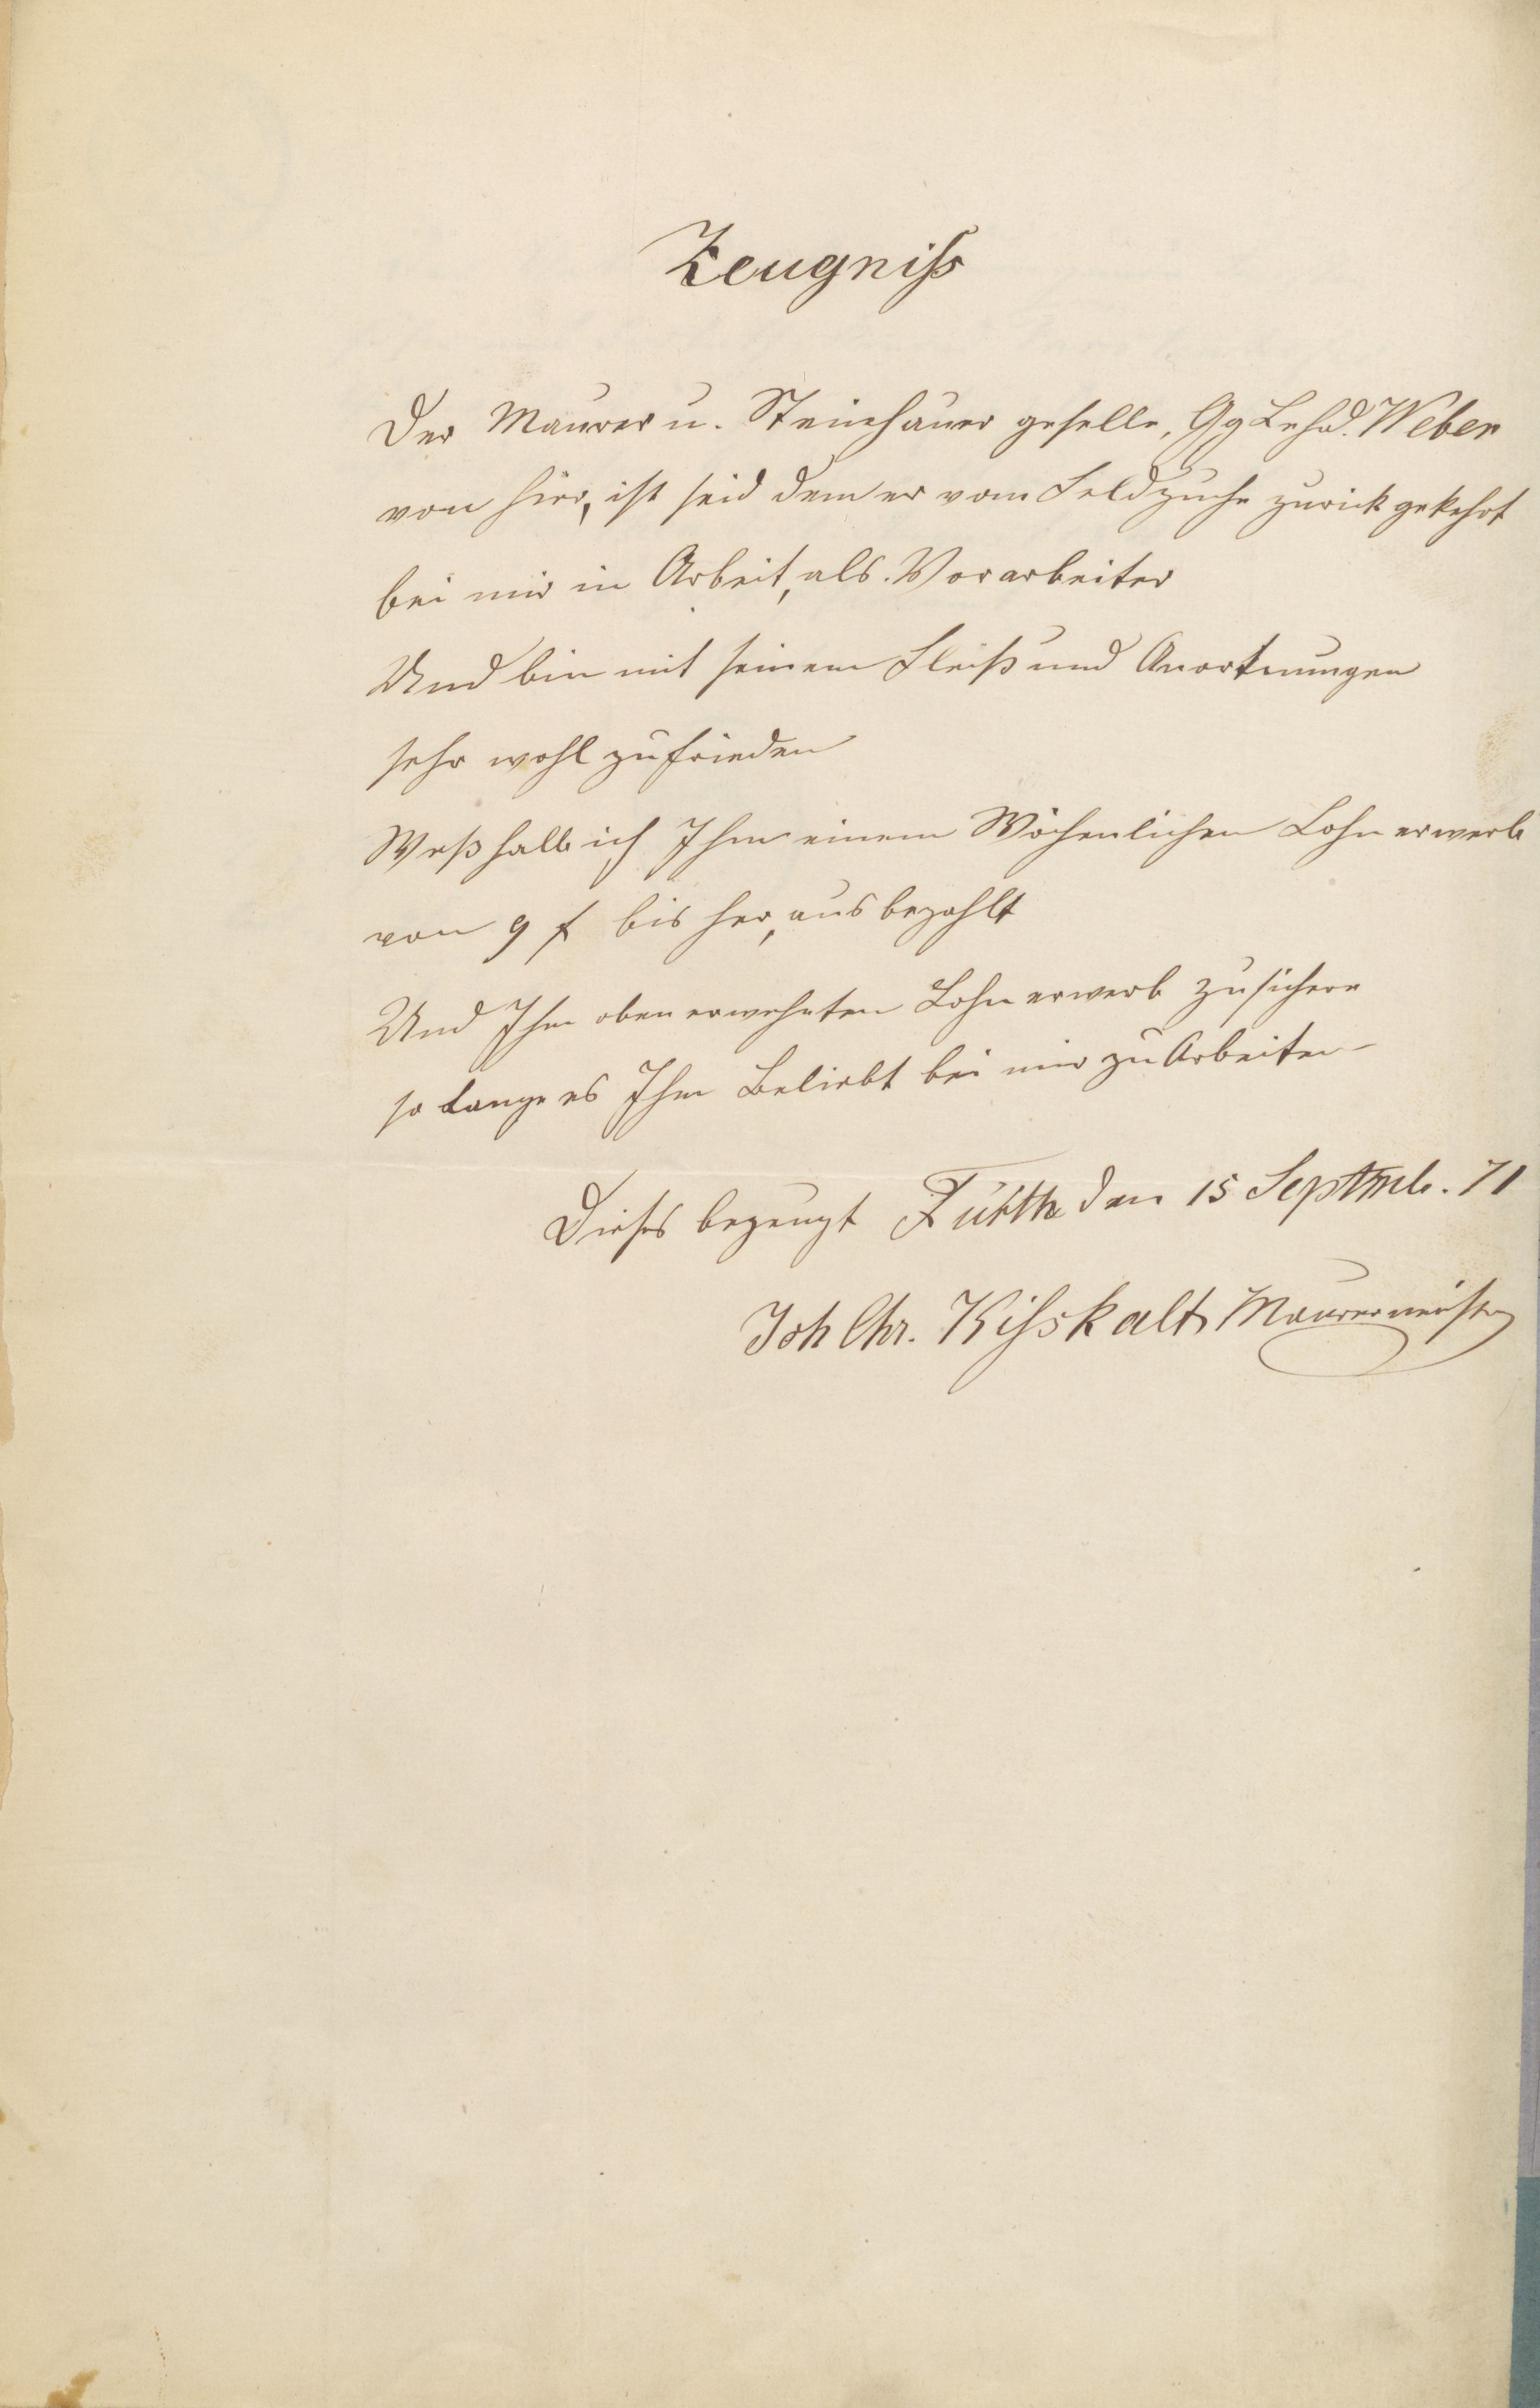 Zeugniss
Der Maurer u. Steinhauer geselle, Gg Lehd. Weber
von hier, ist seid dem er vom Feldzuche zurick gekehrt
bei mir in Arbeit, als. Vorarbeiter
Und bin mit seinem Fleiß und Anortnungen
sehr wohl zufrieden
Weßhalb ich Ihm einem Wöchenlichen Lohn erwerb
von 9 f bis her, ausbezahlt
Und Ihm oben erwehnten Lohn erwerb zusichere
so Lange es Ihm Beliebt bei mir zu Arbeiten
Dieses bezeugt Fürth den 15 Septmb. 71
Joh Chr. Kisskalt Maurermeister